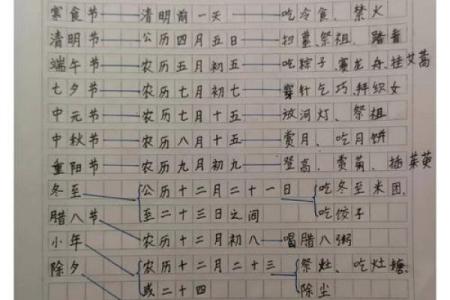 寒食节——清明前一天——吃冷食、禁火
清明节——公历四月五日——扫墓、祭祖、踏青
端午节——农历五月初五——吃粽子、赛龙舟、挂艾蒿
七夕节——农历七月初七——穿针乞巧、拜织女
中元节——农历七月十五——放河灯、祭祖
中秋节——农历八月十五——赏月、吃月饼
重阳节——农历九月初九——登高、赏菊、插茱萸
冬至 公历十二月二十一日 吃冬至米团、
至二十三日之间 吃饺子
腊八节 农历十二月初八——喝腊八粥
小年 农历十二月二十三 祭灶、吃灶糖、
除夕 或二十四 除尘